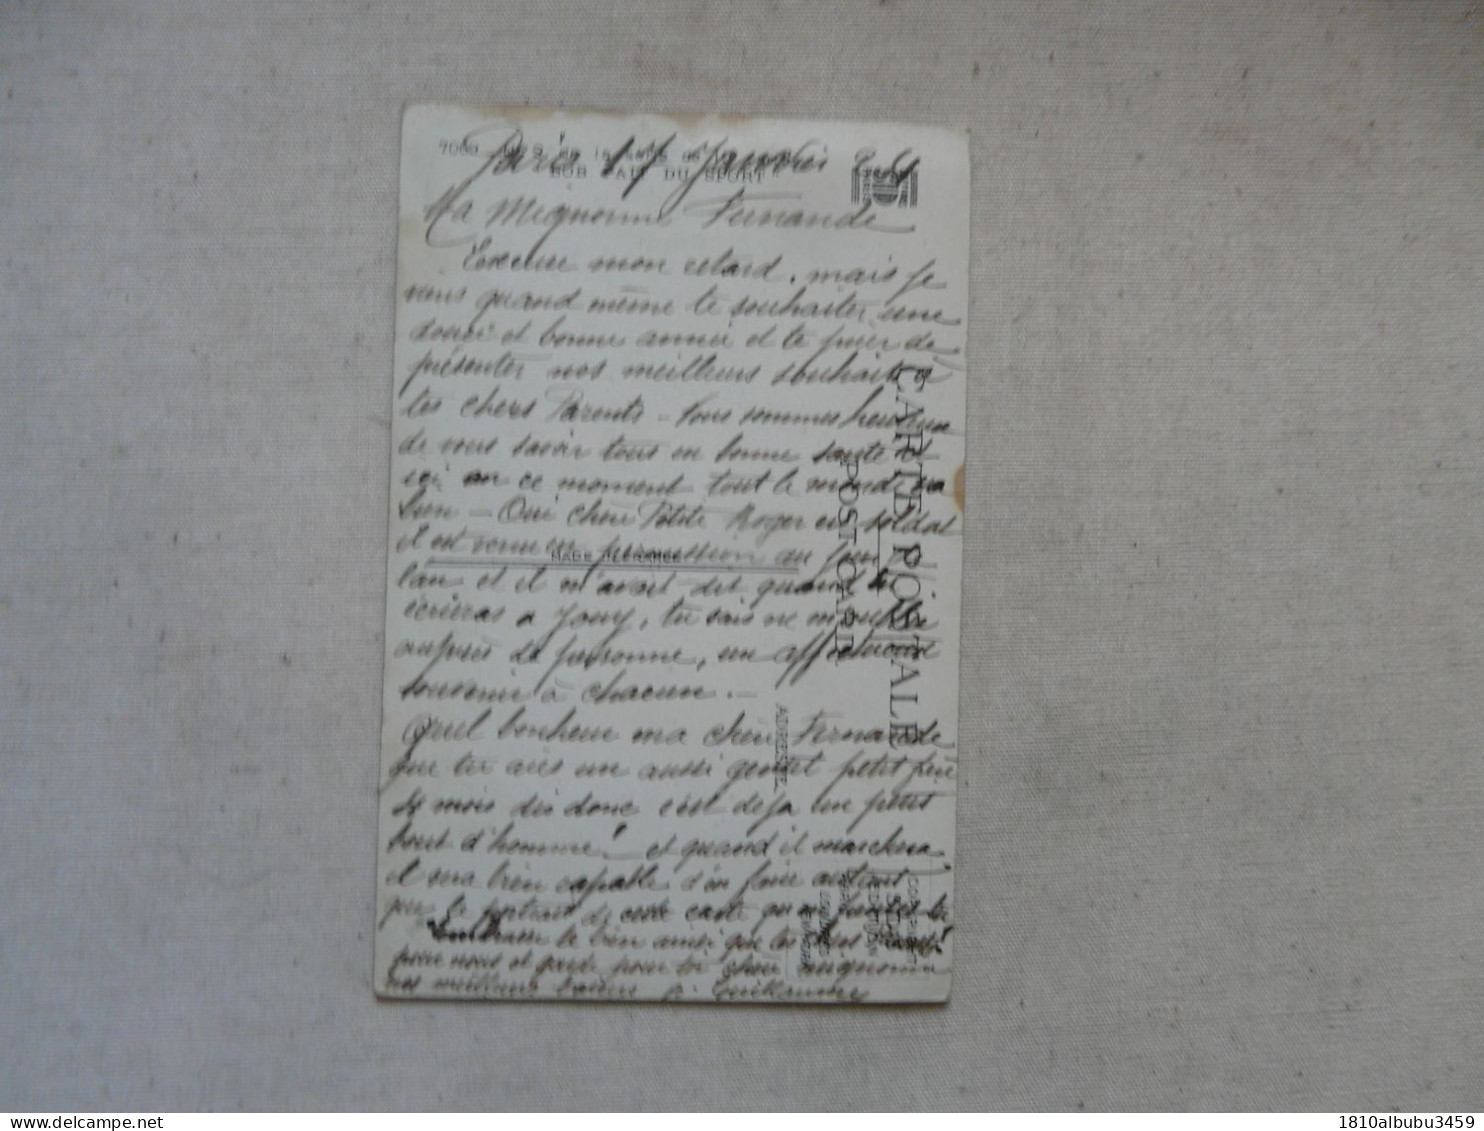 Paris 17 Janvier
BOB FAIT DU SPORT
Ma Mignonne Fernande
Excuse mon retard, mais je
veux quand même te souhaiter une
douce et bonne année et te prier de
présenter nos meilleurs souhaits à
tes chers Parents - Nous sommes heureux
de vous savoir tous en bonne santé et
ici en ce moment tout le monde va
bien - Oui chère Petite Roger est soldat
il est venu en permission au jour de
MADE IN FRANCE
l'an et il m'avait dit quand tu
écriras a Jouy, tu sais ne m'oublie
auprès de personne, un affectueux
souvenir à chacun. -
Quel bonheur ma chère Fernande
que tu aies un aussi gentil petit frère
mois dis donc c'est déja un petit
bout d'homme! - et quand il marchera
il sera bien capable d'en faire autant
que le portrait de cette carte
Embrasse le bien ainsi que tes chers Parents
pour nous et garde pour toi chère mignonne
nos meilleurs baisers Guillaume
CARTE POSTALE
POST CARD
ADRESSE
1810albubu3459
delcampe.net